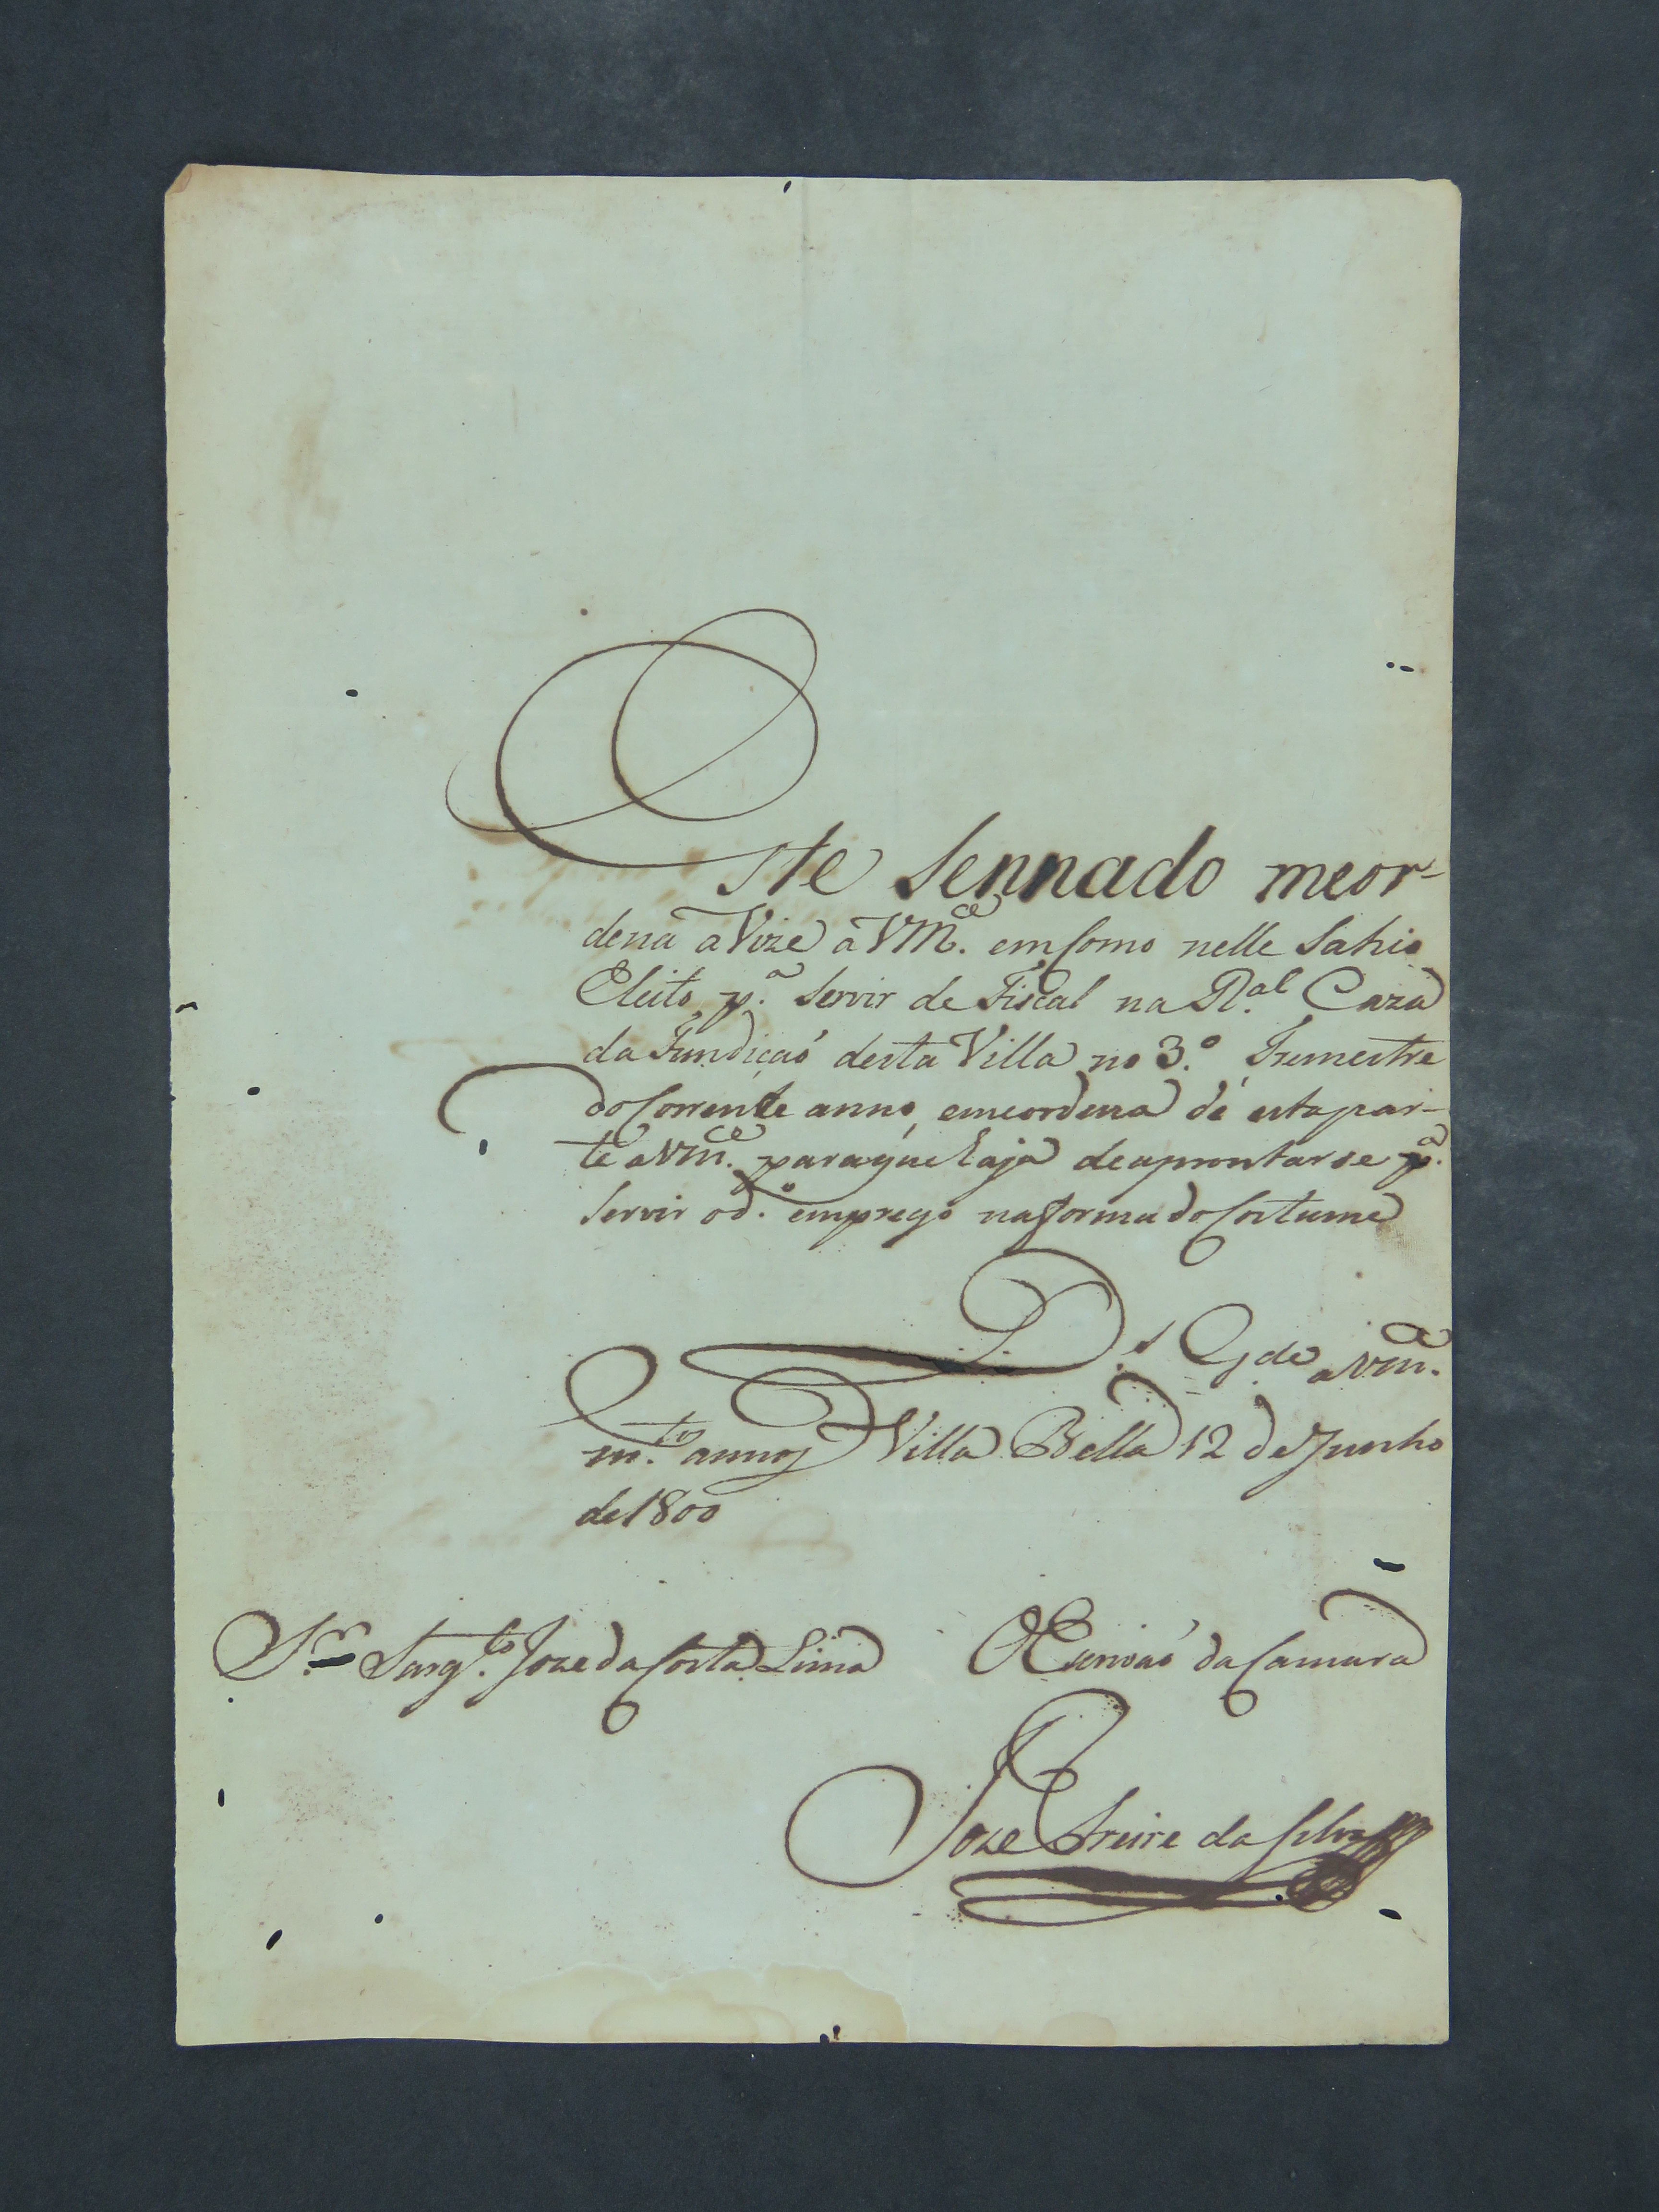 Este Sennado meor-
dena aVize a VM.ce em Como nelle Sahio
Eleito p.a Servir de Fiscal na R.al Caza
da Fundiçaó desta Villa no 3.o Tremestre
do Corrente anno, emeordena dé esta par-
te aVm.ce paraque haja deaprontarse p.a
Servir od.o emprego naforma do Costume
D.s G.de aVm.ce
m.tos annos Villa Bella 12 de Junho
de 1800
S.r Sarg.to Joze da Costa Lima
O Escrivaó da Camara
Joze Freire da Silva